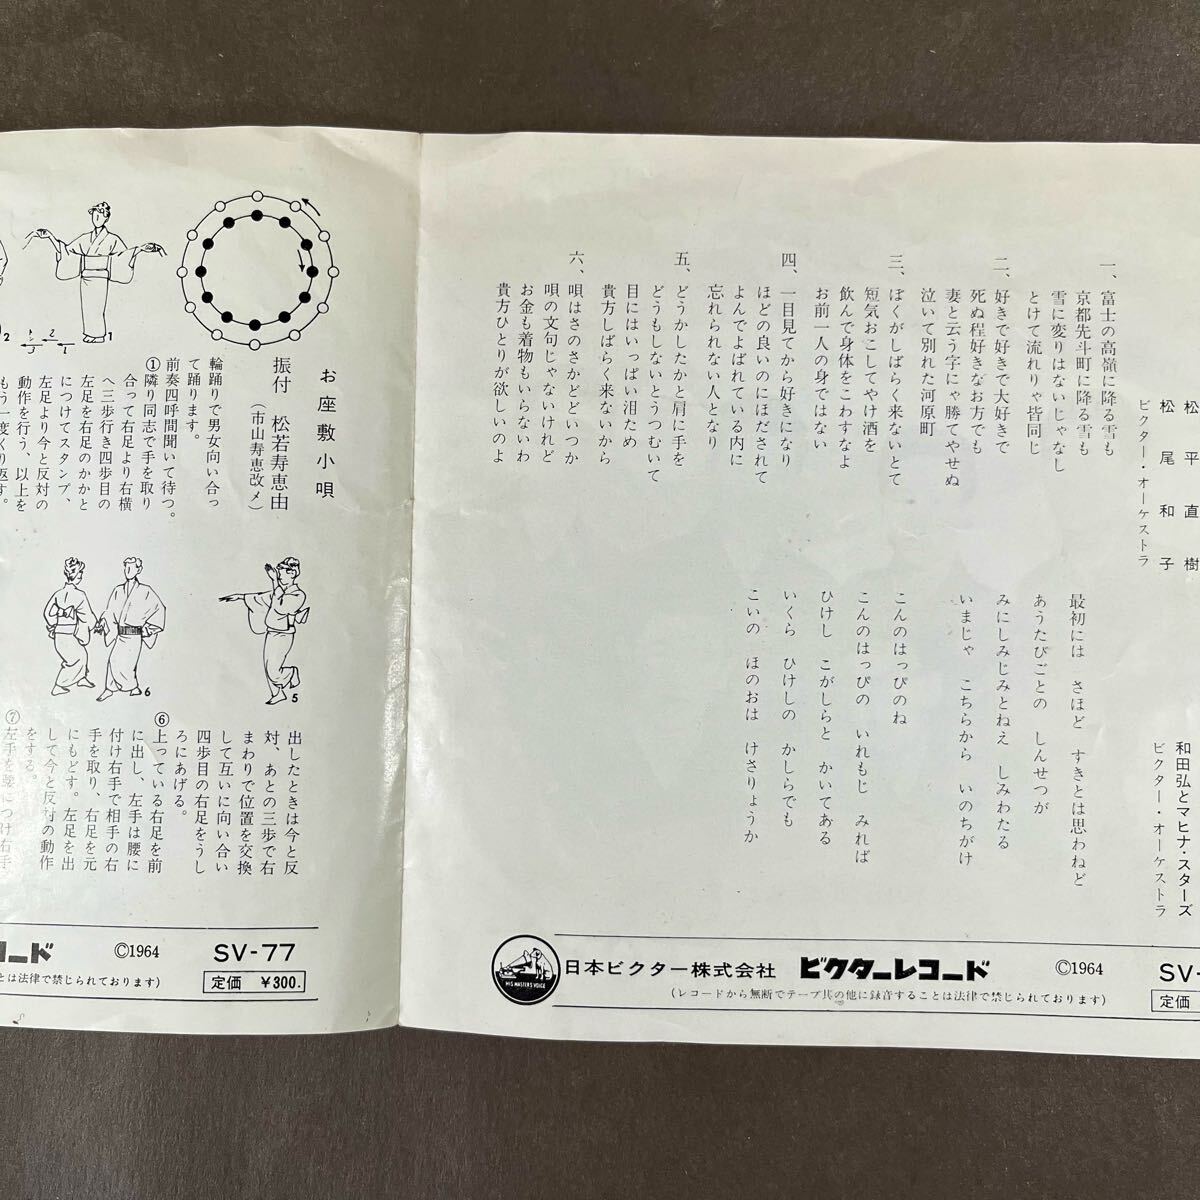 松平直樹
松尾和子
ビクター・オーケストラ
一、富士の高嶺に降る雪も
京都先斗町に降る雪も
雪に変りはないじゃなし
とけて流れりゃ皆同じ
二、好きで好きで大好きで
死ぬ程好きなお方でも
妻と云う字にゃ勝てやせぬ
泣いて別れた河原町
三、ぼくがしばらく来ないとて
短気おこしてやけ酒を
飲んで身体をこわすなよ
お前一人の身ではない
四、一目見てから好きになり
ほどの良いのにほだされて
よんでよばれている内に
忘れられない人となり
五、どうかしたかと肩に手を
どうもしないとうつむいて
目にはいっぱい泪ため
貴方しばらく来ないから
六、唄はさのさかどどいつか
唄の文句じゃないけれど
お金も着物もいらないわ
貴方ひとりが欲しいのよ
和田弘とマヒナ・スターズ
ビクター・オーケストラ
最初には さほど すきとは思わねど
あうたびごとの しんせつが
みにしみじみとねえ しみわたる
いまじゃ こちらから いのちがけ
こんのはっぴのね
こんのはっぴの いれもじ みれば
ひけし こがしらと かいてある
いくら ひけしの かしらでも
こいの ほのおは けさりょうか
HIS MASTER'S VOICE
日本ビクター株式会社 ビクターレコード ©1964 SV-
(レコードから無断でテープ其の他に録音することは法律で禁じられております) 定価
お座敷小唄
振付 松若寿恵由
(市山寿恵改メ)
輪踊りで男女向い合っ
て踊ります。
前奏四呼間聞いて待つ。
①隣り同志で手を取り
合って右足より右横
へ三歩行き四歩目の
左足を右足のかかと
につけてスタンプ、
左足より今と反対の
動作を行う、以上を
もう一度くり返す。
1
2
1
2
3
5
6
出したときは今と反
対、あとの三歩で右
まわりで位置を交換
して互いに向い合い
四歩目の右足をうし
ろにあげる。
⑥上っている右足を前
に出し、左手は腰に
付け右手で相手の右
手を取り、右足を元
にもどす。左足を出
して今と反対の動作
をする。
⑦左手を腰につけ右手
コード ©1964 SV-77
とは法律で禁じられております) 定価 ¥300.